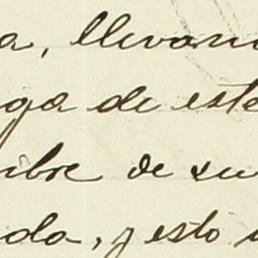 a, llevan
ga de este
mbre de su
da, y esto